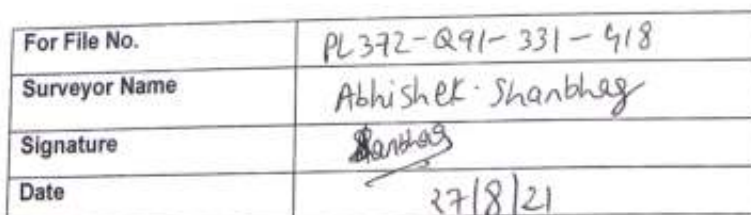 For File No. PL372-Q91-331-418
Surveyor Name Abhishek Shanbhag
Signature Shanbhag
Date 27/8/21